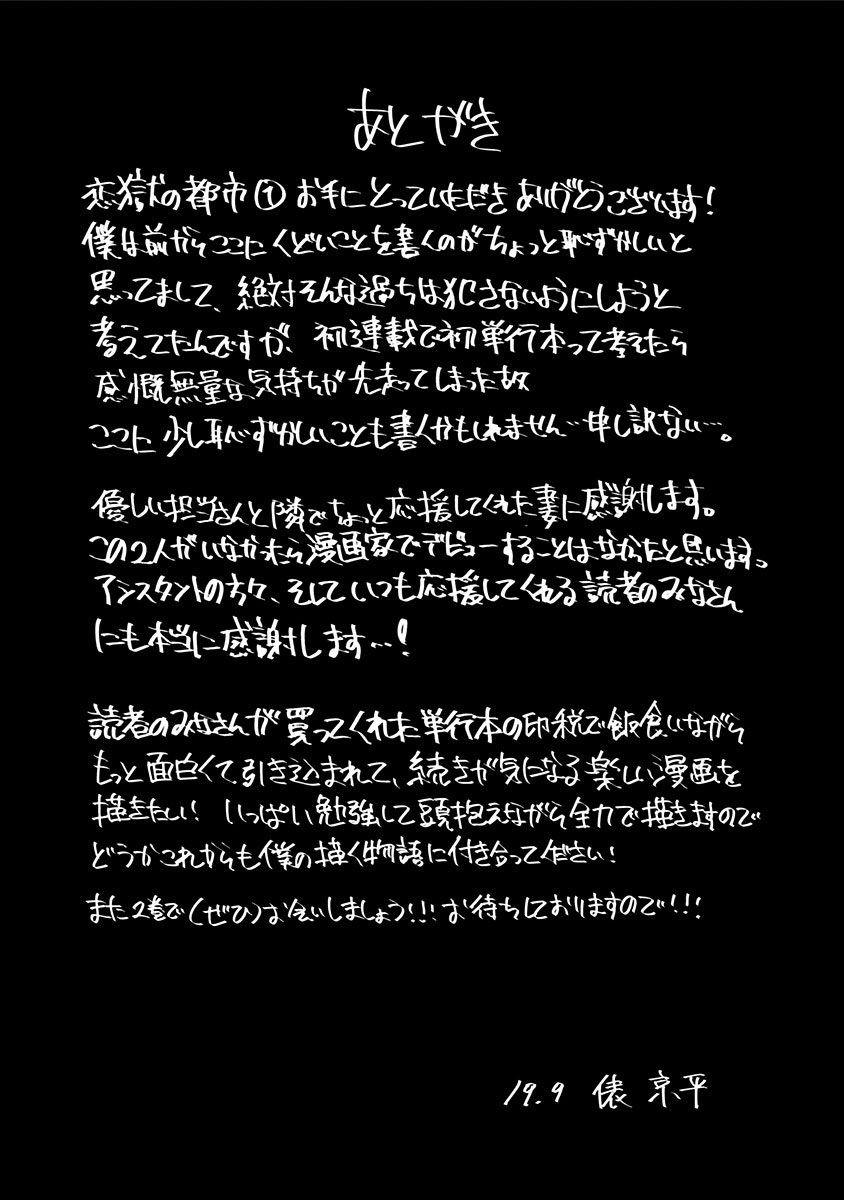 あとがき
恋獄の都市① お手にとっていただきありがとうございます!
僕は前からここにくどいことを書くのがちょっと恥ずかしいと
思ってまして、絶対そんな過ちは犯さないようにしようと
考えてたんですが、初連載で初単行本って考えたら
感慨無量な気持ちが先走ってしまった故
ここに少し恥ずかしいことも書くかもしれません…申し訳ない…。
優しい担当さんと隣でちょっと応援してくれた妻に感謝します。
この2人がいなかったら漫画家でデビューすることはなかったと思います。
アシスタントの方々、そしていつも応援してくれる読者のみなさん
にも本当に感謝します…!
読者のみなさんが買ってくれた単行本の印税で飯食いながら
もっと面白くて引き込まれて、続きが気になる楽しい漫画を
描きたい! いっぱい勉強して頭抱えながら全力で描きますので
どうかこれからも僕の描く物語に付き合ってください!
また2巻で(ぜひ)お会いしましょう!!! お待ちしておりますので!!!
19.9 俵 京平